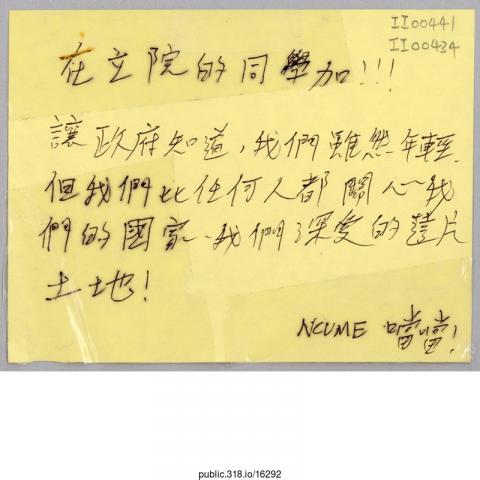 II00441
II00434
在立院的同學加!!!
讓政府知道,我們雖然年輕.
但我們比任何人都關心我
們的國家、我們深愛的這片
土地!
NCUME 噹噹!
public.318.io/16292